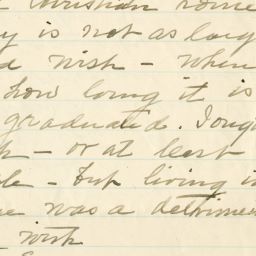 Christian home
y is not as long
d wish - when
how long it is
graduated. I oug
k - or at least
le - But living i
e was a detrimen
wish